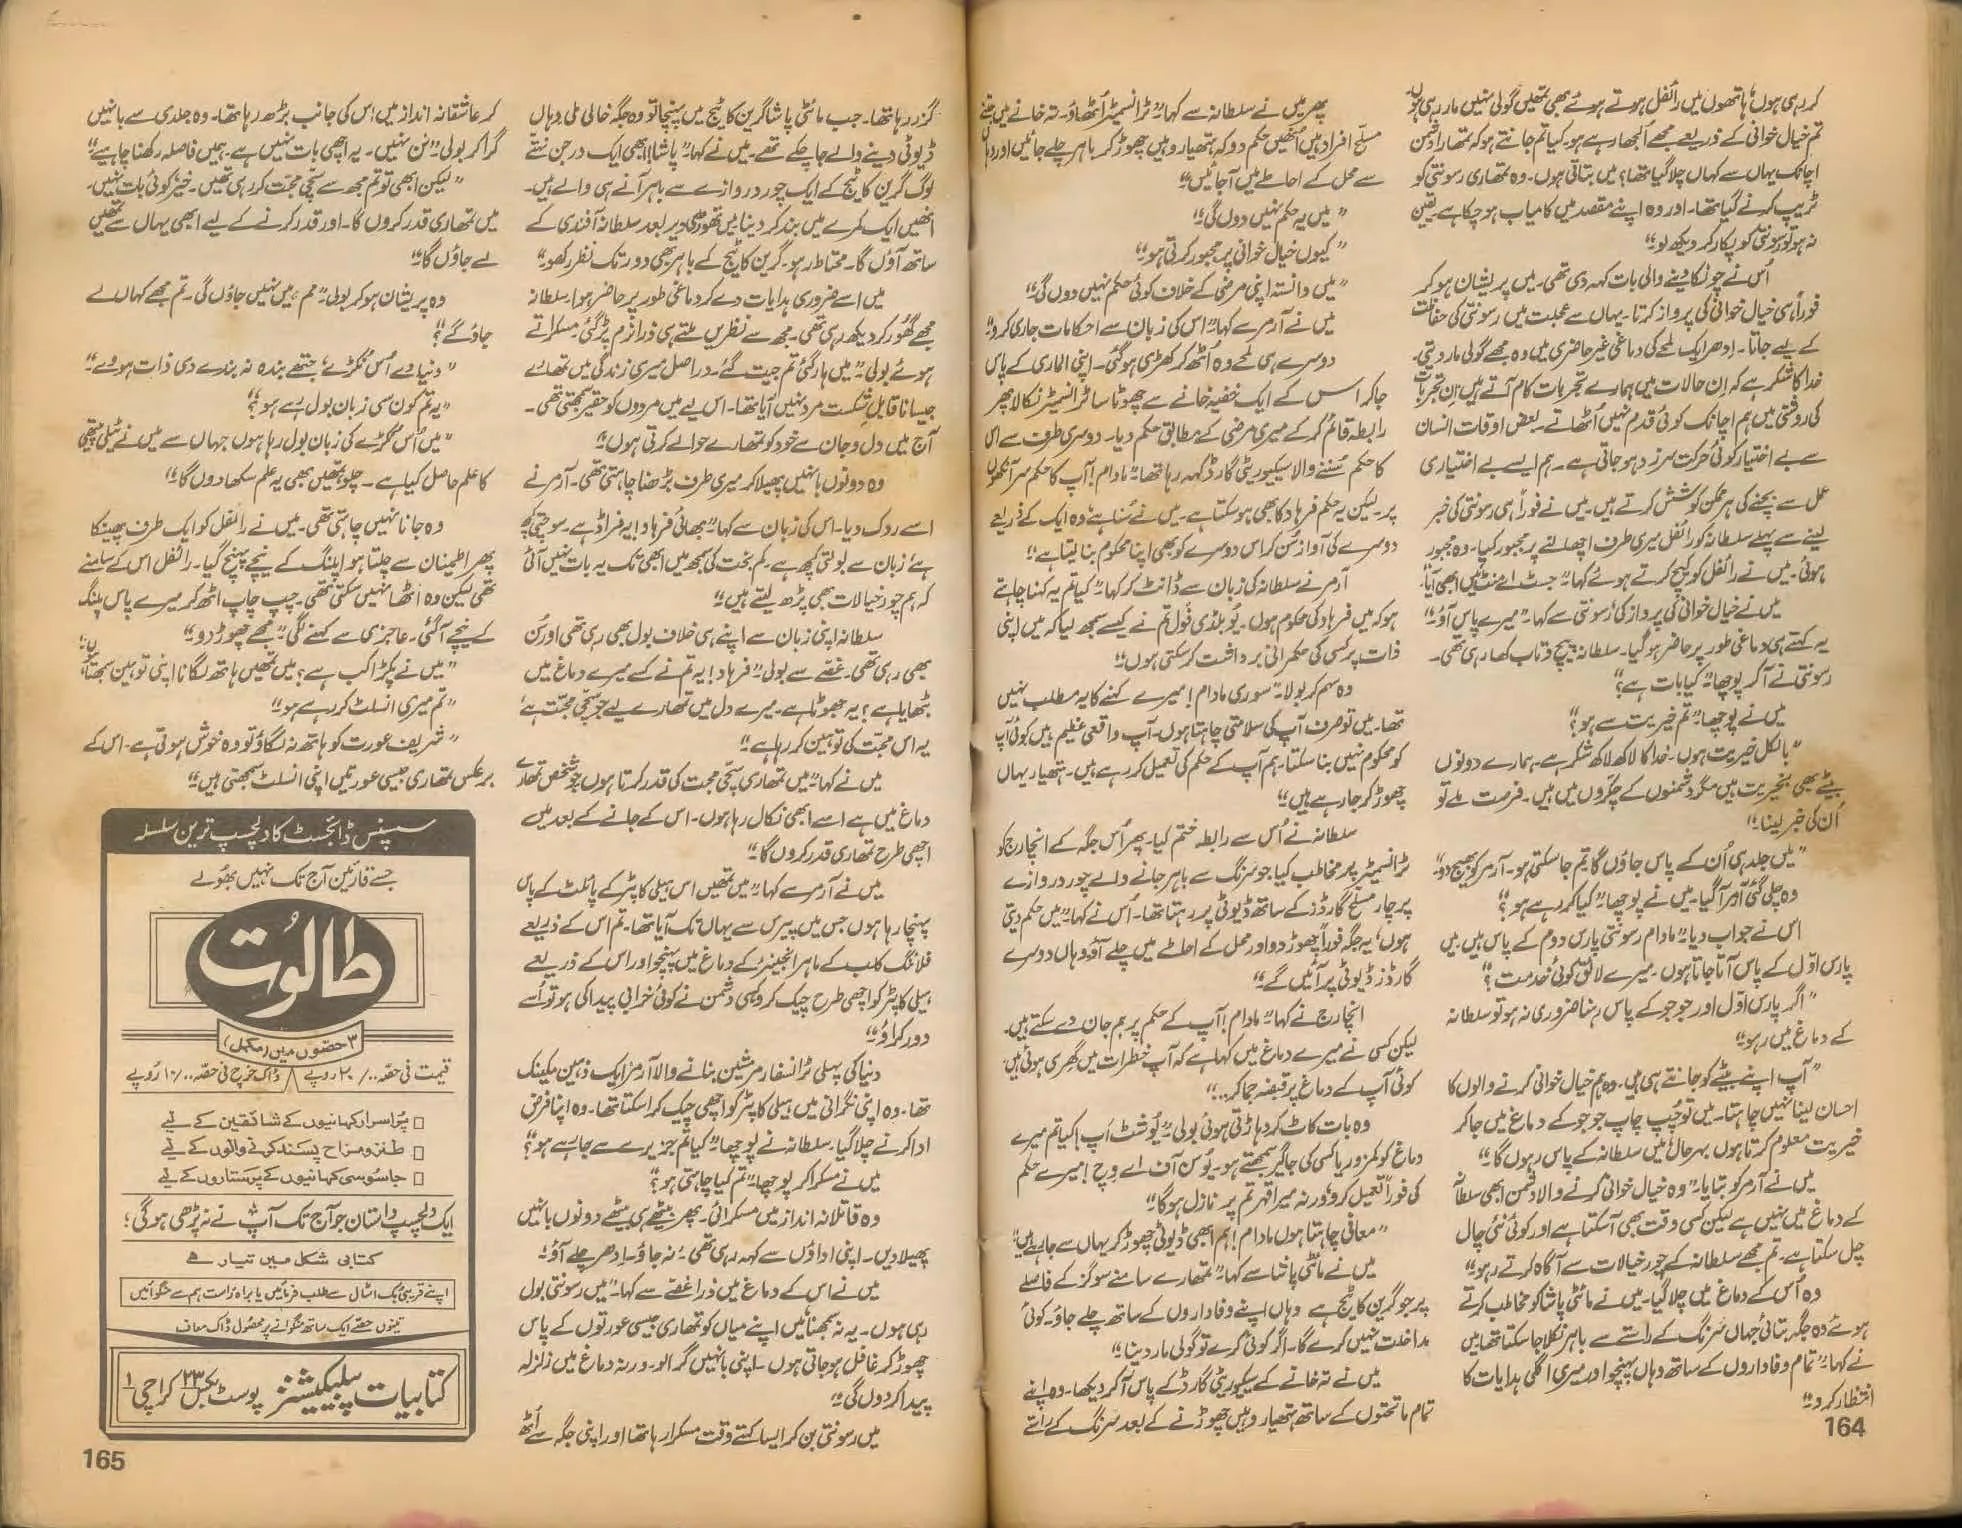 کر رہی ہوں‘ ہاتھوں میں رائفل ہوتے ہوئے بھی تمھیں گولی نہیں مار رہی ہوں۔
تم خیال خوانی کے ذریعے مجھے اُلجھا رہے ہو۔ کیا تم جانتے ہو کہ تمھارا دشمن
اچانک یہاں سے کہاں چلا گیا تھا؟ میں بتاتی ہوں۔ وہ تمھاری رسونتی کو
ٹریپ کرنے گیا تھا۔ اور وہ اپنے مقصد میں کامیاب ہو چکا ہے یقین
نہ ہو تو رسونتی کو پکار کر دیکھ لو۔“
اُس نے چونکا دینے والی بات کہہ دی تھی۔ میں پریشان ہو کر
فوراً ہی خیال خوانی کی پرواز کرتا۔ یہاں سے عجلت میں رسونتی کی حفاظت
کے لیے جاتا۔ اِدھر ایک لمحے کی دماغی غیر حاضری میں وہ مجھے گولی مار دیتی۔
خدا کا شکر ہے کہ اِن حالات میں ہمارے تجربات کام آتے ہیں اِن تجربات
کی روشنی میں ہم اچانک کوئی قدم نہیں اُٹھاتے۔ بعض اوقات انسان
سے بے اختیار کوئی حرکت سرزد ہو جاتی ہے۔ ہم ایسے بے اختیاری
عمل سے بچنے کی ہر ممکن کوشش کرتے ہیں۔ میں نے فوراً ہی رسونتی کی خبر
لینے سے پہلے سلطانہ کو رائفل میری طرف اچھالنے پر مجبور کیا۔ وہ مجبور
ہوئی۔ میں نے رائفل کو کیچ کرتے ہوئے کہا۔ ”جسٹ اے منٹ میں ابھی آیا۔“
میں نے خیال خوانی کی پرواز کی رسونتی سے کہا۔ ”میرے پاس آؤ۔“
یہ کہتے ہی دماغی طور پر حاضر ہو گیا۔ سلطانہ پیچ و تاب کھا رہی تھی۔
رسونتی نے آ کر پوچھا۔ ”کیا بات ہے؟“
میں نے پوچھا۔ ”تم خیریت سے ہو؟“
”بالکل خیریت ہوں۔ خدا کا لاکھ لاکھ شکر ہے۔ ہمارے دونوں
بیٹے بھی بخیریت ہیں مگر دشمنوں کے چکروں میں ہیں۔ فرصت ملے تو
اُن کی خبر لینا۔“
”میں جلد ہی اُن کے پاس جاؤں گا۔ تم جا سکتی ہو۔ آرمر کو بھیج دو۔“
وہ چلی گئی آرمر آ گیا۔ میں نے پوچھا۔ ”کیا کر رہے ہو؟“
اس نے جواب دیا۔ ”مادام رسونتی پارس دوم کے پاس ہیں۔ میں
پارس اوّل کے پاس آتا جاتا ہوں۔ میرے لائق کوئی خدمت؟“
”اگر پارس اوّل اور جوجو کے پاس رہنا ضروری نہ ہو تو سلطانہ
کے دماغ میں رہو۔“
”آپ اپنے بیٹے کو جانتے ہی ہیں۔ وہ ہم خیال خوانی کرنے والوں کا
احسان لینا نہیں چاہتا۔ میں تو چُپ چاپ جوجو کے دماغ میں جا کر
خیریت معلوم کرتا ہوں بہرحال میں سلطانہ کے پاس رہوں گا۔“
میں نے آرمر کو بتایا۔ ”وہ خیال خوانی کرنے والا دشمن ابھی سلطانہ
کے دماغ میں نہیں ہے لیکن کسی وقت بھی آ سکتا ہے اور کوئی نئی چال
چل سکتا ہے۔ تم مجھے سلطانہ کے چور خیالات سے آگاہ کرتے رہو۔“
وہ اُس کے دماغ میں چلا گیا۔ میں نے مائٹی پاشا کو مخاطب کرتے
ہوئے وہ جگہ بتائی جہاں سرنگ کے راستے سے باہر نکلا جا سکتا تھا۔ میں
نے کہا۔ ”تمام وفاداروں کے ساتھ وہاں پہنچو اور میری اگلی ہدایات کا
انتظار کرو۔“
164
پھر میں نے سلطانہ سے کہا۔ ”ٹرانسمیٹر اُٹھاؤ۔ تہ خانے میں جتنے
مسلّح افراد ہیں اُنھیں حکم دو کہ ہتھیار وہیں چھوڑ کر باہر چلے جائیں اور وہاں
سے محل کے احاطے میں آ جائیں۔“
”میں یہ حکم نہیں دوں گی۔“
”کیوں خیال خوانی پر مجبور کرتی ہو۔“
”میں دانستہ اپنی مرضی کے خلاف کوئی حکم نہیں دوں گی۔“
میں نے آرمر سے کہا۔ ”اس کی زبان سے احکامات جاری کرو۔“
دوسرے ہی لمحے وہ اُٹھ کر کھڑی ہو گئی۔ اپنی الماری کے پاس
جا کر اس کے ایک خفیہ خانے سے چھوٹا سا ٹرانسمیٹر نکالا پھر
رابطہ قائم کر کے میری مرضی کے مطابق حکم دیا۔ دوسری طرف سے اس
کا حکم سُننے والا سیکیورٹی گارڈ کہہ رہا تھا۔ ”مادام! آپ کا حکم سر آنکھوں
پر۔ لیکن یہ حکم فرہاد کا بھی ہو سکتا ہے۔ میں نے سُنا ہے وہ ایک کے ذریعے
دوسرے کی آواز سُن کر اس دوسرے کو بھی اپنا محکوم بنا لیتا ہے۔“
آرمر نے سلطانہ کی زبان سے ڈانٹ کر کہا۔ ”کیا تم یہ کہنا چاہتے
ہو کہ میں فرہاد کی محکوم ہوں۔ یُو بلڈی فُول تم نے کیسے سمجھ لیا کہ میں اپنی
ذات پر کسی کی حکمرانی برداشت کر سکتی ہوں۔“
وہ سہم کر بولا۔ ”سوری مادام! میرے کہنے کا یہ مطلب نہیں
تھا۔ میں تو صرف آپ کی سلامتی چاہتا ہوں۔ آپ واقعی عظیم ہیں کوئی آپ
کو محکوم نہیں بنا سکتا۔ ہم آپ کے حکم کی تعمیل کر رہے ہیں۔ ہتھیار یہاں
چھوڑ کر جا رہے ہیں۔“
سلطانہ نے اُس سے رابطہ ختم کیا۔ پھر اُس جگہ کے انچارج کو
ٹرانسمیٹر پر مخاطب کیا جو سرنگ سے باہر جانے والے چور دروازے
پر چار مسلح گارڈز کے ساتھ ڈیوٹی پر رہتا تھا۔ اُس نے کہا۔ ”میں حکم دیتی
ہوں‘ یہ جگہ فوراً چھوڑ دو اور محل کے احاطے میں چلے آؤ وہاں دوسرے
گارڈز ڈیوٹی پر آئیں گے۔“
انچارج نے کہا۔ ”مادام! آپ کے حکم پر ہم جان دے سکتے ہیں۔
لیکن کسی نے میرے دماغ میں کہا ہے کہ آپ خطرات میں گھری ہوئی ہیں
کوئی آپ کے دماغ پر قبضہ جما کر...“
وہ بات کاٹ کر دہاڑتی ہوئی بولی۔ ”یُو شٹ اَپ! کیا تم میرے
دماغ کو کمزور یا کسی کی جاگیر سمجھتے ہو۔ یُو سن آف اے وچ! میرے حکم
کی فوراً تعمیل کرو ورنہ میرا قہر تم پر نازل ہو گا۔“
”معافی چاہتا ہوں مادام! ہم ابھی ڈیوٹی چھوڑ کر یہاں سے جا رہے ہیں۔“
میں نے مائٹی پاشا سے کہا۔ ”تمھارے سامنے سو گز کے فاصلے
پر جو گرین کاٹیج ہے وہاں اپنے وفاداروں کے ساتھ چلے جاؤ۔ کوئی
مداخلت نہیں کرے گا۔ اگر کوئی کرے تو گولی مار دینا۔“
میں نے تہ خانے کے سیکیورٹی گارڈ کے پاس آ کر دیکھا۔ وہ اپنے
تمام ماتحتوں کے ساتھ ہتھیار وہیں چھوڑنے کے بعد سرنگ کے راستے
گزر رہا تھا۔ جب مائٹی پاشا گرین کاٹیج میں پہنچا تو وہ جگہ خالی ملی وہاں
ڈیوٹی دینے والے جا چکے تھے۔ میں نے کہا۔ ”پاشا! ابھی ایک درجن نہتے
لوگ گرین کاٹیج کے ایک چور دروازے سے باہر آنے ہی والے ہیں۔
اُنھیں ایک کمرے میں بند کر دینا میں تھوڑی دیر بعد سلطانہ آفندی کے
ساتھ آؤں گا۔ محتاط رہو۔ گرین کاٹیج کے باہر بھی دور تک نظر رکھو۔“
میں اسے ضروری ہدایات دے کر دماغی طور پر حاضر ہوا۔ سلطانہ
مجھے گھور کر دیکھ رہی تھی۔ مجھ سے نظریں ملتے ہی ذرا نرم پڑ گئی۔ مسکراتے
ہوئے بولی۔ ”میں ہار گئی تم جیت گئے۔ دراصل میری زندگی میں تمھارے
جیسا ناقابلِ شکست مرد نہیں آیا تھا۔ اس لیے میں مردوں کو حقیر سمجھتی تھی۔
آج میں دل و جان سے خود کو تمھارے حوالے کرتی ہوں۔“
وہ دونوں بانہیں پھیلا کر میری طرف بڑھنا چاہتی تھی۔ آرمر نے
اسے روک دیا۔ اس کی زبان سے کہا۔ ”بھائی فرہاد! یہ فراڈ ہے۔ سوچتی کچھ
ہے‘ زبان سے بولتی کچھ ہے۔ کم بخت کی سمجھ میں ابھی تک یہ بات نہیں آئی
کہ ہم چور خیالات بھی پڑھ لیتے ہیں۔“
سلطانہ اپنی زبان سے اپنے ہی خلاف بول بھی رہی تھی اور سُن
بھی رہی تھی۔ غصّے سے بولی۔ ”فرہاد! یہ تم نے کسے میرے دماغ میں
بٹھایا ہے؟ یہ جھوٹا ہے۔ میرے دل میں تمھارے لیے جو سچّی محبّت ہے‘
یہ اس محبّت کی توہین کر رہا ہے۔“
میں نے کہا۔ ”میں تمھاری سچّی محبت کی قدر کرتا ہوں جو شخص تمھارے
دماغ میں ہے اسے ابھی نکال رہا ہوں۔ اس کے جانے کے بعد میں
اچھی طرح تمھاری قدر کروں گا۔“
میں نے آرمر سے کہا۔ ”میں تمھیں اس ہیلی کاپٹر کے پائلٹ کے پاس
پہنچا رہا ہوں جس میں پیرس سے یہاں تک آیا تھا۔ تم اس کے ذریعے
فلائنگ کلب کے ماہر انجینیئر کے دماغ میں پہنچو اور اس کے ذریعے
ہیلی کاپٹر کو اچھی طرح چیک کرو کسی دشمن نے کوئی خرابی پیدا کی ہو تو اُسے
دور کراؤ۔“
دنیا کی پہلی ٹرانسفارمر مشین بنانے والا آرمر ایک ذہین مکینک
تھا۔ وہ اپنی نگرانی میں ہیلی کاپٹر کو اچھی چیک کرا سکتا تھا۔ وہ اپنا فرض
ادا کرنے چلا گیا۔ سلطانہ نے پوچھا۔ ”کیا تم جزیرے سے جا رہے ہو؟“
میں نے مسکرا کر پوچھا۔ ”تم کیا چاہتی ہو؟“
وہ قاتلانہ انداز میں مسکرائی۔ پھر بیٹھے ہی بیٹھے دونوں بانہیں
پھیلا دیں۔ اپنی اداؤں سے کہہ رہی تھی۔ ’نہ جاؤ۔ اِدھر چلے آؤ۔‘
میں نے اس کے دماغ میں ذرا غصّے سے کہا۔ ”میں رسونتی بول
رہی ہوں۔ یہ نہ سمجھنا‘ میں اپنے میاں کو تمھاری جیسی عورتوں کے پاس
چھوڑ کر غافل ہو جاتی ہوں۔ اپنی بانہیں گرا لو۔ ورنہ دماغ میں زلزلہ
پیدا کر دوں گی۔“
میں رسونتی بن کر ایسا کہتے وقت مسکرا رہا تھا اور اپنی جگہ سے اُٹھ
کر عاشقانہ انداز میں اس کی جانب بڑھ رہا تھا۔ وہ جلدی سے بانہیں
گرا کر بولی۔ ”نن نہیں۔ یہ اچھی بات نہیں ہے۔ ہمیں فاصلہ رکھنا چاہیے۔“
”لیکن ابھی تو تم مجھ سے سچّی محبّت کر رہی تھیں۔ خیر کوئی بات نہیں۔
میں تمھاری قدر کروں گا۔ اور قدر کرنے کے لیے ابھی یہاں سے تمھیں
لے جاؤں گا۔“
وہ پریشان ہو کر بولی۔ ”مم‘ میں نہیں جاؤں گی۔ تم مجھے کہاں لے
جاؤ گے؟“
”دنیا دے اُس نگرے‘ جتھے بندہ نہ بندے دی ذات ہووے۔“
”یہ تم کون سی زبان بول رہے ہو؟“
”میں اُس نگرے کی زبان بول رہا ہوں جہاں سے میں نے ٹیلی پیتھی
کا علم حاصل کیا ہے۔ چلو تمھیں بھی یہ علم سکھا دوں گا۔“
وہ جانا نہیں چاہتی تھی۔ میں نے رائفل کو ایک طرف پھینکا
پھر اطمینان سے چلتا ہوا پلنگ کے نیچے پہنچ گیا۔ رائفل اس کے سامنے
تھی لیکن وہ اٹھا نہیں سکتی تھی۔ چپ چاپ اٹھ کر میرے پاس پلنگ
کے نیچے آ گئی۔ عاجزی سے کہنے لگی۔ ”مجھے چھوڑ دو۔“
”میں نے پکڑا کب ہے؟ میں تمھیں ہاتھ لگانا اپنی توہین سمجھتا ہوں۔“
”تم میری انسلٹ کر رہے ہو۔“
”شریف عورت کو ہاتھ نہ لگاؤ تو وہ خوش ہوتی ہے۔ اس کے
برعکس تمھاری جیسی عورتیں اپنی انسلٹ سمجھتی ہیں۔“
سسپنس ڈائجسٹ کا دلچسپ ترین سلسلہ
جسے قارئین آج تک نہیں بھولے
طالُوت
۳ حصّوں میں (مکمل)
قیمت فی حصّہ ۲۰/۰۰ روپے / ڈاک خرچ فی حصّہ ۱۰/۰۰ روپے
پُراسرار کہانیوں کے شائقین کے لیے
طنز و مزاح پسند کرنے والوں کے لیے
جاسوسی کہانیوں کے پرستاروں کے لیے
ایک دلچسپ داستان جو آج تک آپ نے نہ پڑھی ہوگی؛
کتابی شکل میں تیار ہے
اپنے قریبی بک اسٹال سے طلب فرمائیں یا براہ راست ہم سے منگوائیں
تینوں حصّے ایک ساتھ منگوانے پر محصُول ڈاک معاف
کتابیات پبلیکیشنز پوسٹ بکس ۲۳ کراچی ۱
165